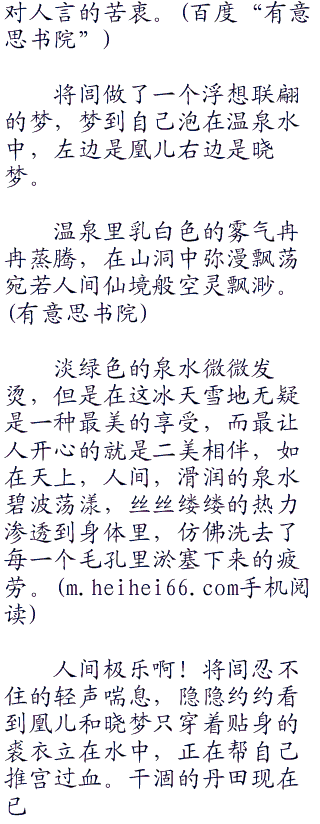 对人言的苦衷。(百度“有意
思书院”)
将闾做了一个浮想联翩
的梦，梦到自己泡在温泉水
中，左边是凰儿右边是晓
梦。
温泉里乳白色的雾气冉
冉蒸腾，在山洞中弥漫飘荡
宛若人间仙境般空灵飘渺。
(有意思书院)
淡绿色的泉水微微发
烫，但是在这冰天雪地无疑
是一种最美的享受，而最让
人开心的就是二美相伴，如
在天上，人间，滑润的泉水
碧波荡漾，丝丝缕缕的热力
渗透到身体里，仿佛洗去了
每一个毛孔里淤塞下来的疲
劳。(m.heihei66.com手机阅
读)
人间极乐啊！将闾忍不
住的轻声喘息，隐隐约约看
到凰儿和晓梦只穿着贴身的
亵衣立在水中，正在帮自己
推宫过血。干涸的丹田现在
已